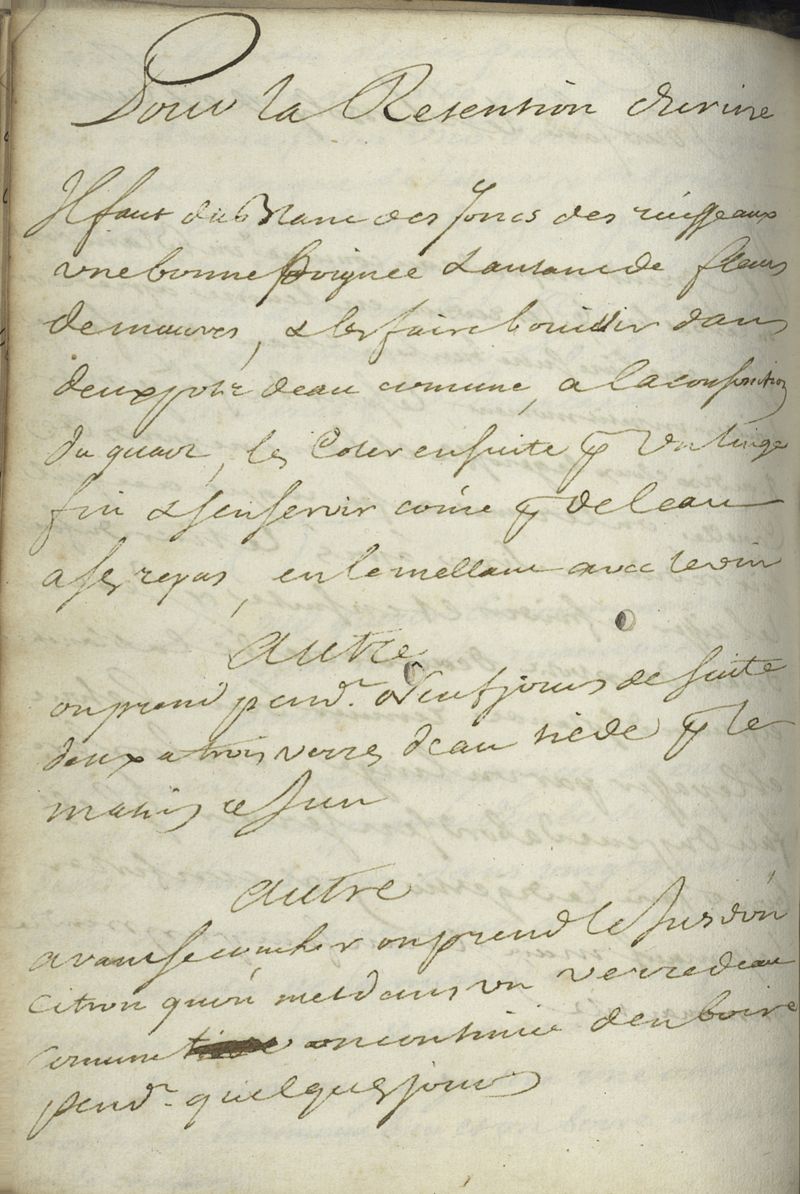 Pour la Retention durine
Il faut du Blanc des Joncs des ruisseaux
une bonne poignée & autant de fleurs
de mauves, & les faire bouillir dans
deux pots deau comune, a la consomtion
du quart, les Coler ensuite p un linge
fin & sen servir comè p de leau
a ses repas, en le mellant avec le vin
autre
on prend pendt. Neuf jours de suite
deux a trois verres deau tiede p le
matin a Jun
autre
avant se coucher on prend le Jus dun
Citron quon met dans un verre deau
comune on continue den boire
pendt. quelques jours